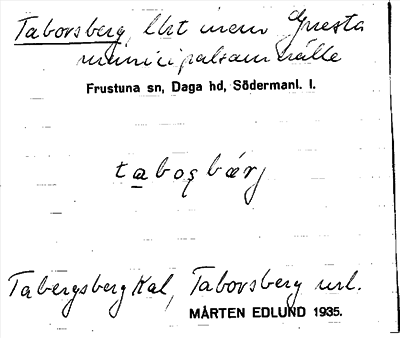 Taborsberg, lht inom Gnesta
municipalsamhälle
Frustuna sn, Daga hd, Södermanl. l.
tabosbærj
Tabergsberg Kal, Taborsberg url.
MÅRTEN EDLUND 1935.